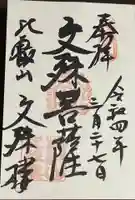 奉拝
令和四年
二月二十七日
文殊菩薩
比叡山
文殊樓